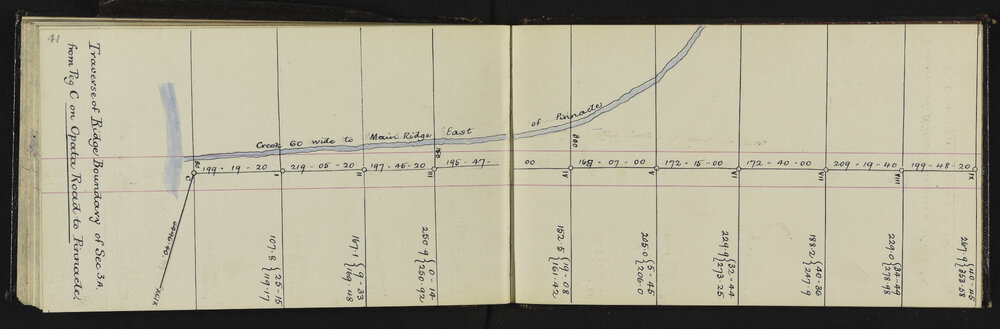 41
Traverse of Ridge Boundary of Sec. 3A.
from Peg C on Opata Road to Pinnacle.
Creek 60 wide to Main Ridge East of Pinnacle
C
199 - 19 - 20
I
219 - 05 - 20
II
197 - 45 - 20
III
195 - 47 - 00
VI
07 - 00
V
172 - 15 - 00
VI
172 - 40 - 00
VII
209 - 19 - 40
VIII
199 - 48 - 20
IX
XLIX
107.8 { 25 - 15
119.17
167.1 { 9 - 33
169.48
250.9 { 0 - 14
250.92
152.5 { 19 - 08
161.42
205.0 { 5 - 45
206.0
229.9 { 32 - 44
273.25
188.2 { 40 - 36
247.9
229.0 { 34 - 49
278.98
267.9 { 40 - 45
353.58